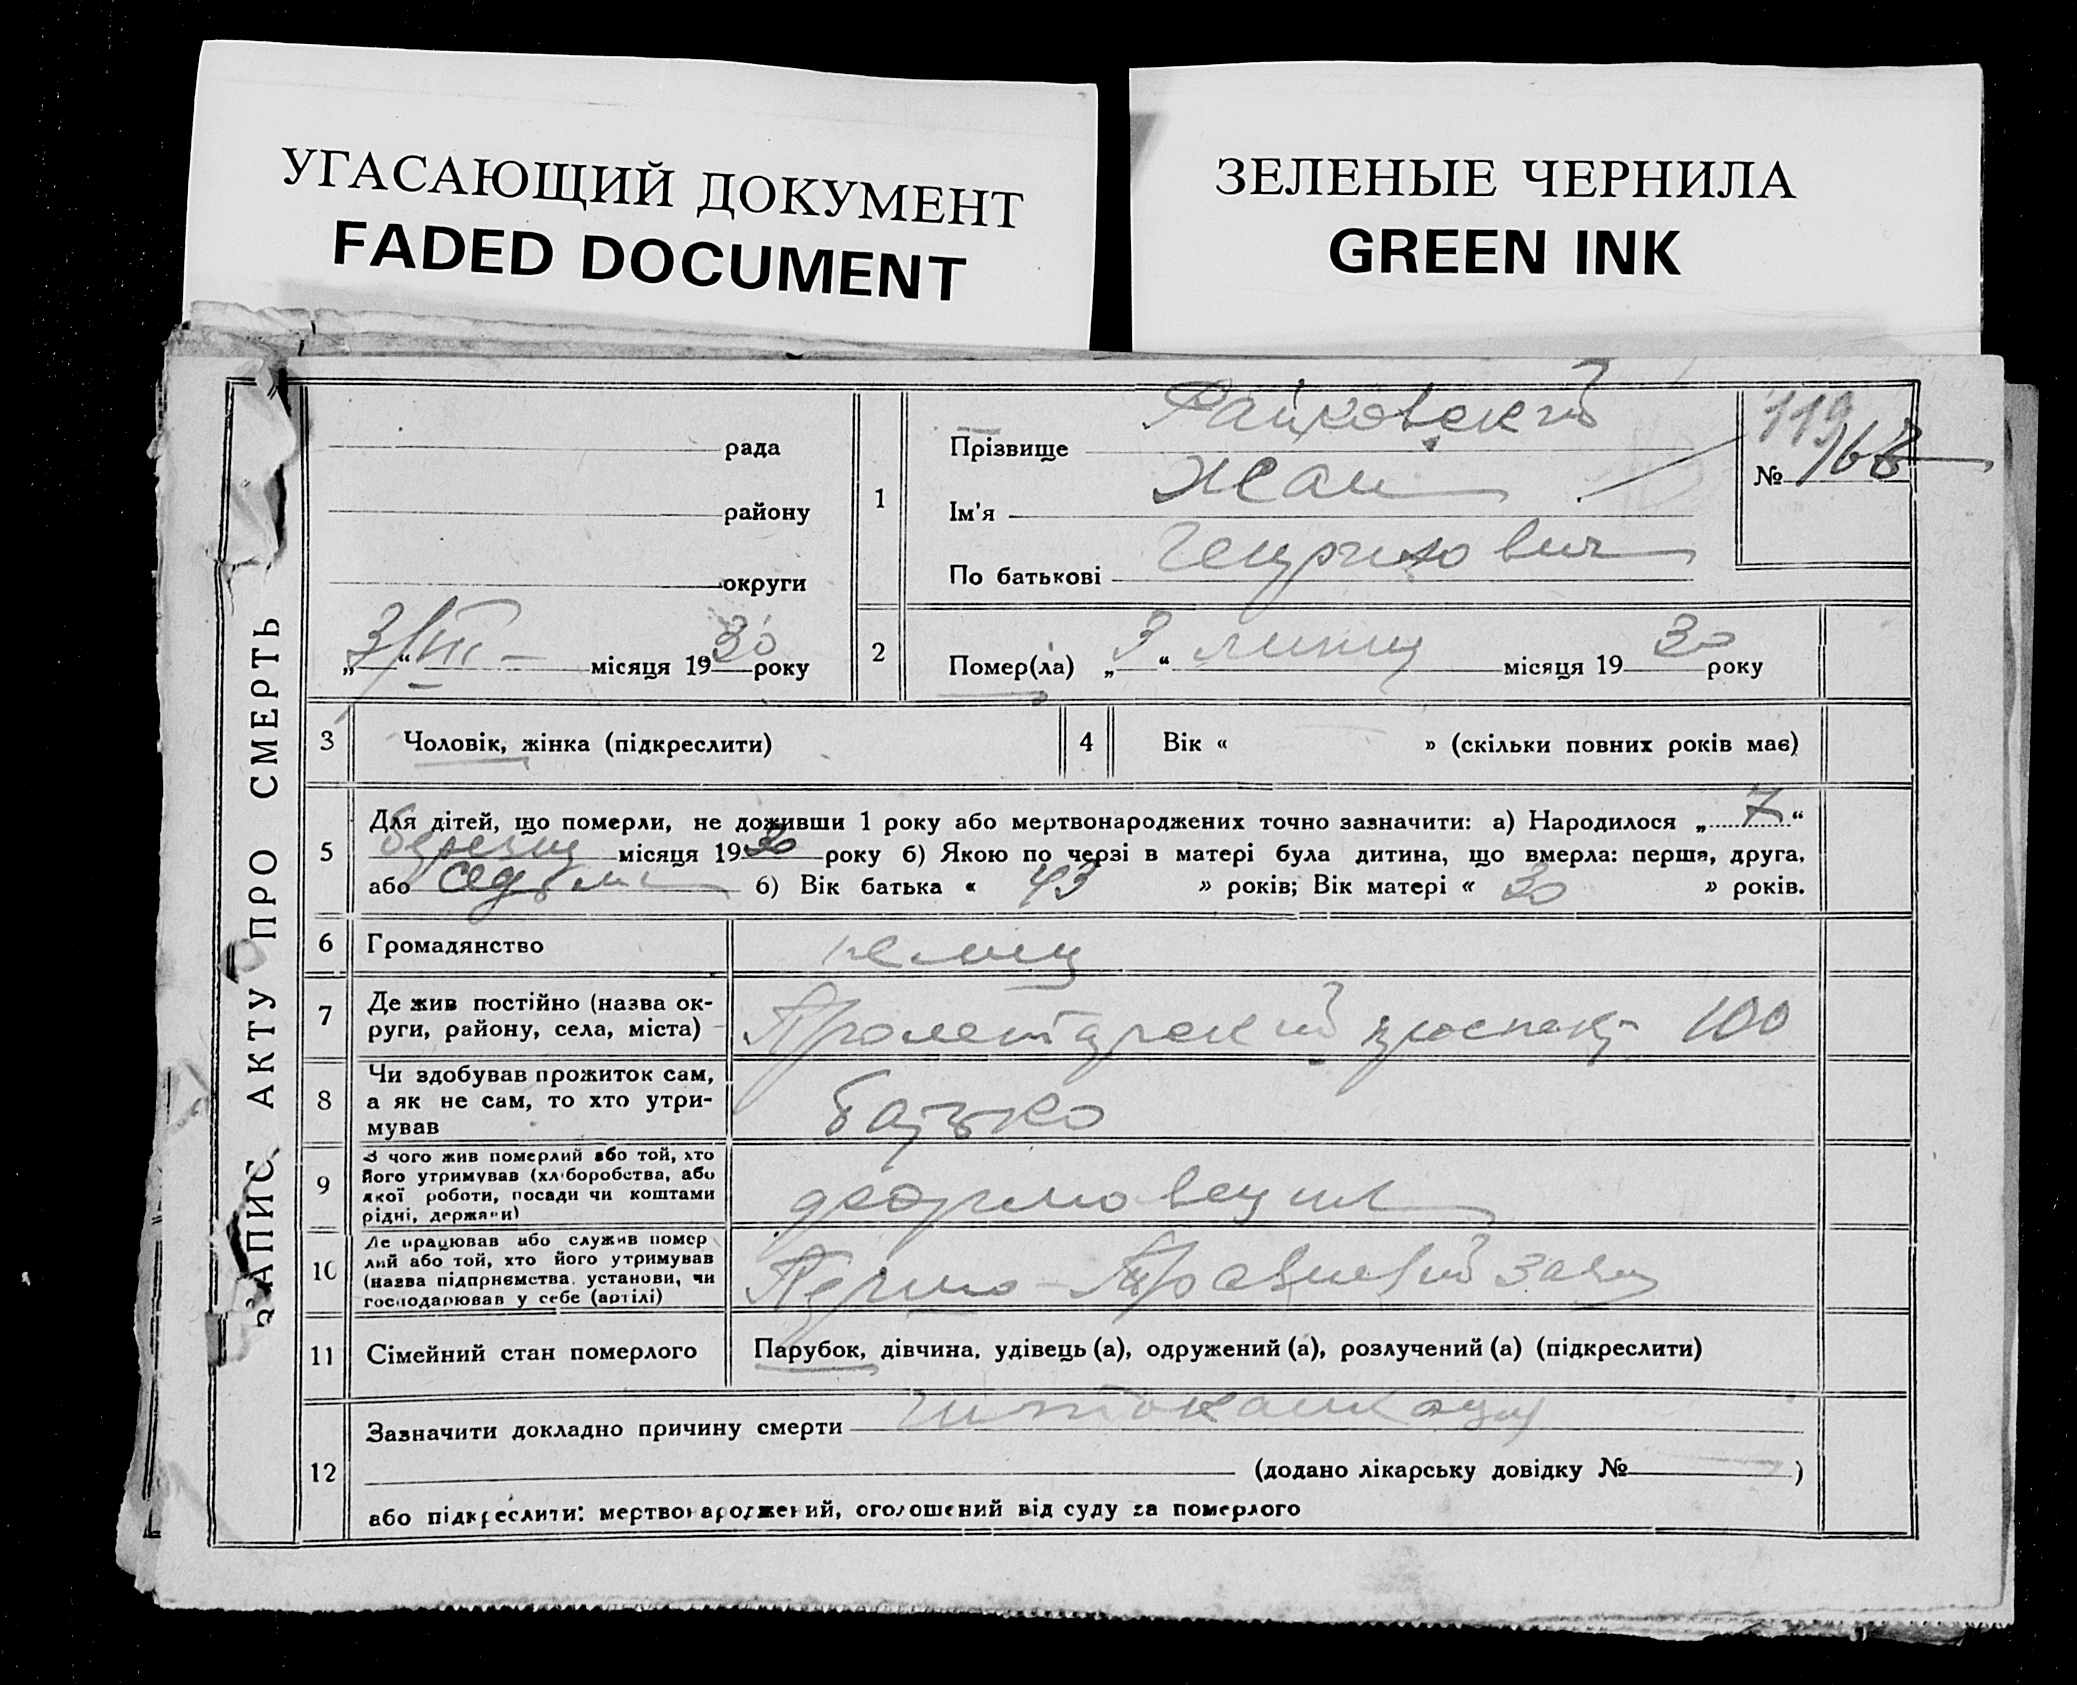 УГАСАЮЩИЙ ДОКУМЕНТ
FADED DOCUMENT
ЗЕЛЕНЫЕ ЧЕРНИЛА
GREEN INK
ЗАПИС АКТУ ПРО СМЕРТЬ
рада
району
округи
„3/VII“ місяця 1930 року
1
Прізвище
Ім'я Жан
По батькові Генрихович
119
№ 168
2
Помер(ла) „3“ липня місяця 1930 року
3
Чоловік, жінка (підкреслити)
4
Вік « » (скільки повних років має)
5
Для дітей, що померли, не доживши 1 року або мертвонароджених точно зазначити: а) Народилося „7“
березня місяця 1930 року б) Якою по черзі в матері була дитина, що вмерла: перша, друга,
або б) Вік батька « 43 » років; Вік матері « 30 » років.
6
Громадянство
7
Де жив постійно (назва ок-
руги, району, села, міста)
Пролетарский проспект 100
8
Чи здобував прожиток сам,
а як не сам, то хто утри-
мував
батько
9
З чого жив померлий або той, хто
його утримував (хліборобства, або
якої роботи, посади чи коштами
рідні, держави)
формовщик
10
Де працював або служив помер
лий або той, хто його утримував
(назва підприємства, установи, чи
господарював у себе (артілі)
завод
11
Сімейний стан померлого
Парубок, дівчина, удівець (а), одружений (а), розлучений (а) (підкреслити)
12
Зазначити докладно причину смерти
(додано лікарську довідку № )
або підкреслити: мертвонароджений, оголошений від суду за померлого